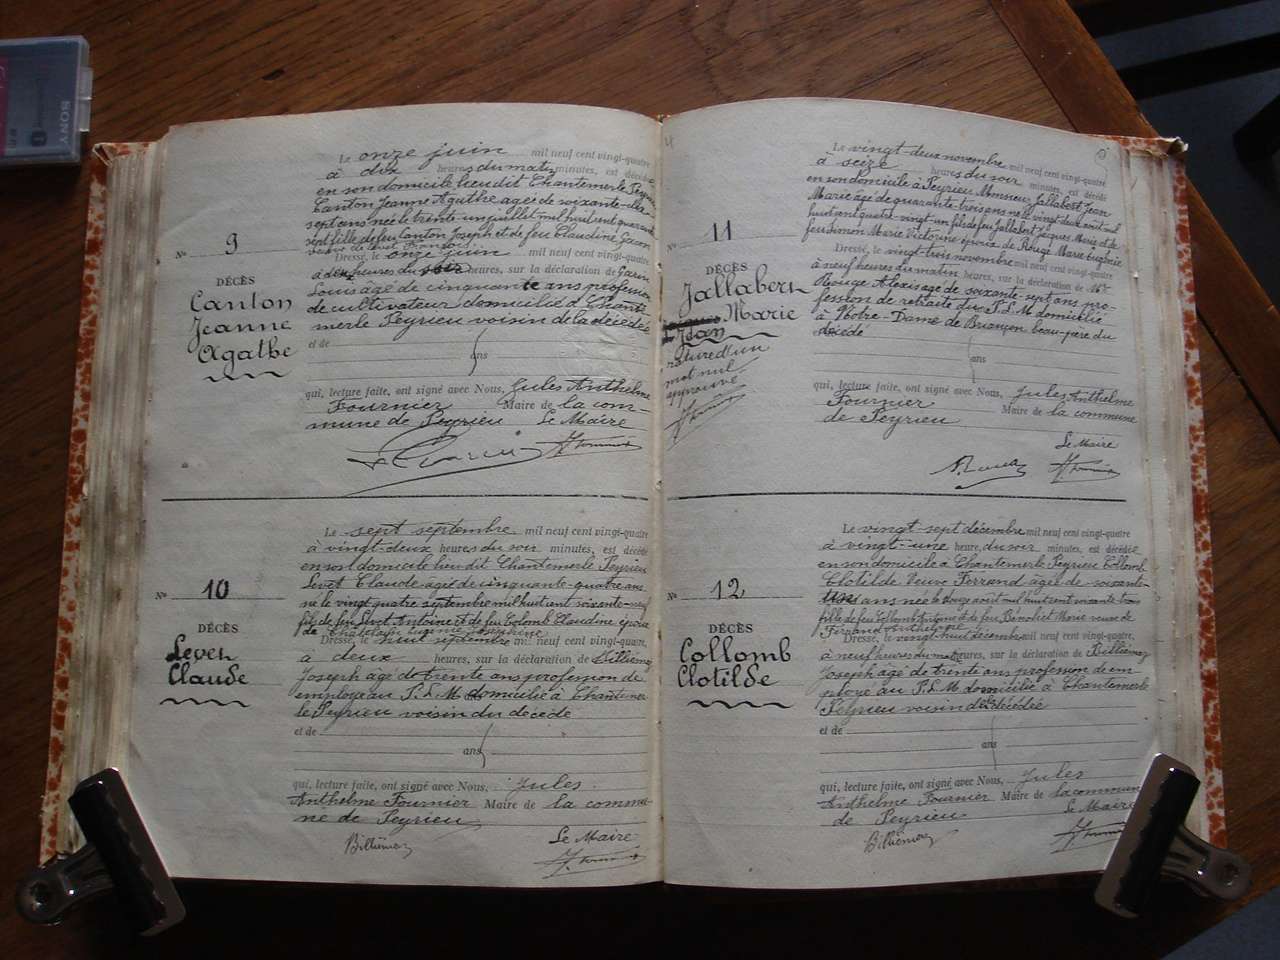 SONY
Le onze juin mil neuf cent vingt-quatre
à dix heures du matin minutes, est décédée
en son domicile lieu dit Chantemerle Peyrieu
Canton Jeanne Agathe agée de soixante-dix-
sept ans née le trente un juillet mil huit cent quarante
sept fille de feu Canton Joseph et de feu Claudine
veuve de Levet François
Dressé, le onze juin mil neuf cent vingt-quatre
à heures du heures, sur la déclaration de Garin
Louis âgé de cinquante ans profession
de cultivateur domicilié à Chante-
merle Peyrieu voisin de la décédée
et de
ans
qui, lecture faite, ont signé avec Nous, Jules Anthelme
Fournier Maire de la com-
mune de Peyrieu Le Maire
No 9
DÉCÈS
Canton
Jeanne
Agathe
Le sept septembre mil neuf cent vingt-quatre
à vingt-deux heures du soir minutes, est décédé
en son domicile lieu dit Chantemerle Peyrieu
Levet Claude agé de cinquante-quatre ans
né le vingt quatre septembre mil huit cent soixante-neuf
fils de feu Levet Antoine et de feu Colomb Claudine époux
de Châtelain Eugénie Joséphine
Dressé, le septembre mil neuf cent vingt-quatre,
à deux heures, sur la déclaration de Billiémaz
Joseph agé de trente ans profession de
employé au P.L.M domicilié à Chantemer
le Peyrieu voisin du décédé
et de
ans
qui, lecture faite, ont signé avec Nous, Jules
Anthelme Fournier Maire de la commu-
ne de Peyrieu
Billiémaz Le Maire
No 10
DÉCÈS
Levet
Claude
Le vingt-deux novembre mil neuf cent vingt-quatre
à seize heures du soir minutes, est décédé
en son domicile à Peyrieu Monsieur Jallabert Jean
Marie âgé de quarante-trois ans né le vingt deux avril mil
huit cent quatre-vingt un fils de feu Jallabert Jacques Marie et de
feu Simon Marie Victoire époux de Rouge Marie
Dressé, le vingt-trois novembre mil neuf cent vingt-quatre
à neuf heures du matin heures, sur la déclaration de Mr
Rouge Alexis agé de soixante-sept ans pro-
fession de retraité du P.L.M domicilié
à Notre-Dame de Briançon beau-père du
décédé
ans
qui, lecture faite, ont signé avec Nous, Jules Anthelme
Fournier Maire de la commune
de Peyrieu
Le Maire
No 11
DÉCÈS
Jallabert
Marie
Jean
rature d'un
mot nul
approuvé
Le vingt-sept décembre mil neuf cent vingt-quatre
à vingt-une heure du soir minutes, est décédée
en son domicile à Chantemerle Peyrieu Collomb
Clotilde Veuve Ferrand âgée de soixante-
ans née le douze août mil huit cent soixante trois
fille de feu Collomb Antoine et de feu Benoîte Marie veuve de
Ferrand
Dressé, le vingt-huit décembre mil neuf cent vingt-quatre
à neuf heures du matin heures, sur la déclaration de Billiémaz
Joseph agé de trente ans profession de em-
ployé au P.L.M domicilié à Chantemerle
Peyrieu voisin de la décédée
et de
ans
qui, lecture faite, ont signé avec Nous, Jules
Anthelme Fournier Maire de la commune
de Peyrieu Le Maire
Billiémaz
No 12
DÉCÈS
Collomb
Clotilde